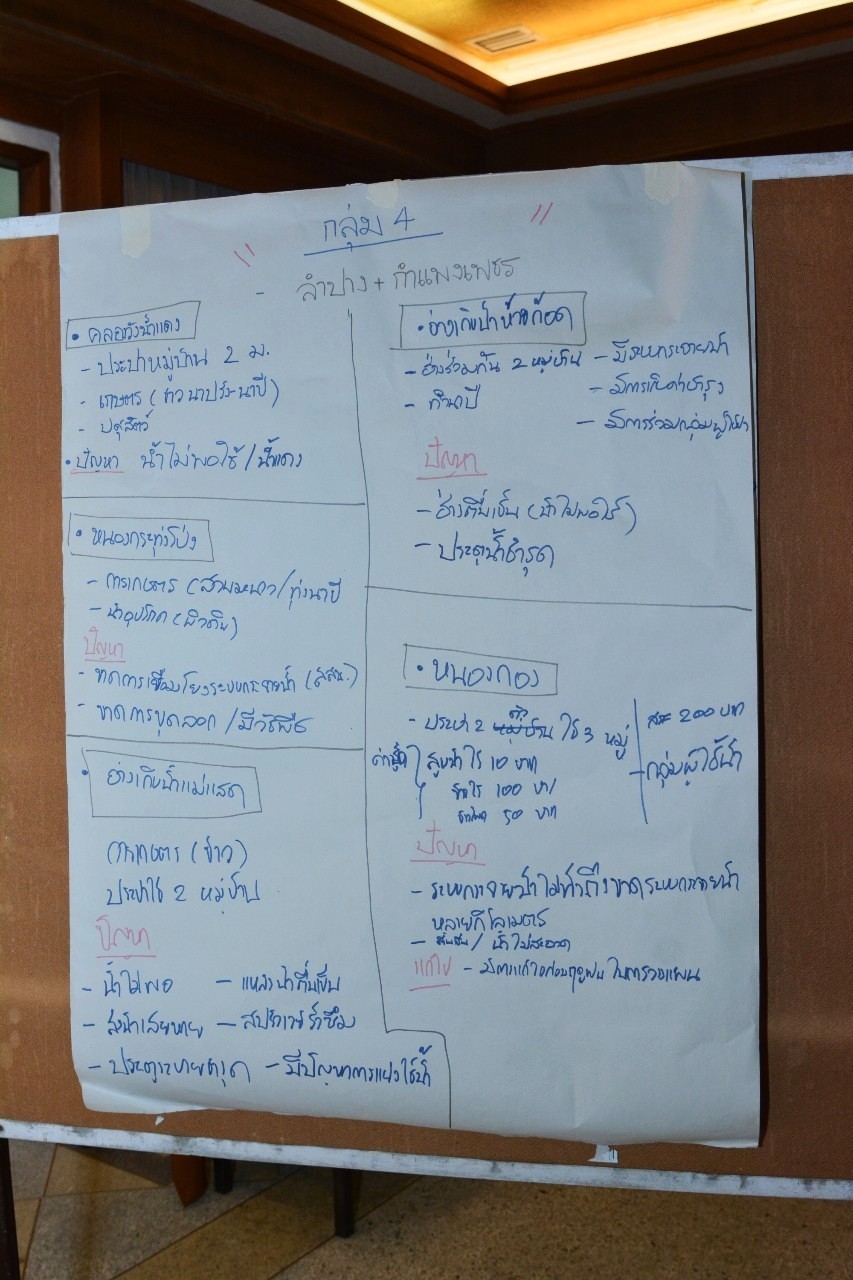 " กลุ่ม 4 "
- ลำปาง + กำแพงเพชร
• คลองวังน้ำแดง
- ประปาหมู่บ้าน 2 ม.
- เกษตร (ข้าวนาปรัง-นาปี)
- ปศุสัตว์
• ปัญหา น้ำไม่พอใช้ / น้ำแดง
• หนองกระทุ่งโป่ง
- การเกษตร (สวนมะนาว / ทุ่งนาปี
- น้ำอุปโภค (ผิวดิน)
ปัญหา
- ขาดการเชื่อมโยงระบบกระจายน้ำ (สสน.)
- ขาดการขุดลอก / มีวัชพืช
• อ่างเก็บน้ำแม่แสด
การเกษตร (ข้าว)
ประปาใช้ 2 หมู่บ้าน
ปัญหา
- น้ำไม่พอ - แหล่งน้ำตื้นเขิน
- ส่งน้ำเสียหาย - สปริงเวย์รั่วซึม
- ประตูระบายชำรุด - มีปัญหาการแย่งใช้น้ำ
• อ่างเก็บน้ำห้วยก้อด
- อ่างร่วมกัน 2 หมู่บ้าน - มีระบบกระจายน้ำ
- ทำนาปี - มีการเก็บค่าบำรุง
- มีการร่วมกลุ่มผู้ใช้น้ำ
ปัญหา
- อ่างตื้นเขิน (น้ำไม่พอใช้)
- ประตูน้ำชำรุด
• หนองกอง
- ประปา 2 ตัว ใช้ 3 หมู่ สระ 200 บาท
สูบน้ำ ไร่ 10 บาท - กลุ่มผู้ใช้น้ำ
100 บาท
50 บาท
ปัญหา
- ระบบกระจายน้ำไม่ทั่วถึงขาดระบบกระจายน้ำ
หลายกิโลเมตร
- ตื้นเขิน / น้ำไม่สะอาด
แก้ไข - มีการแก้ไขก่อนฤดูฝน ในการวางแผน